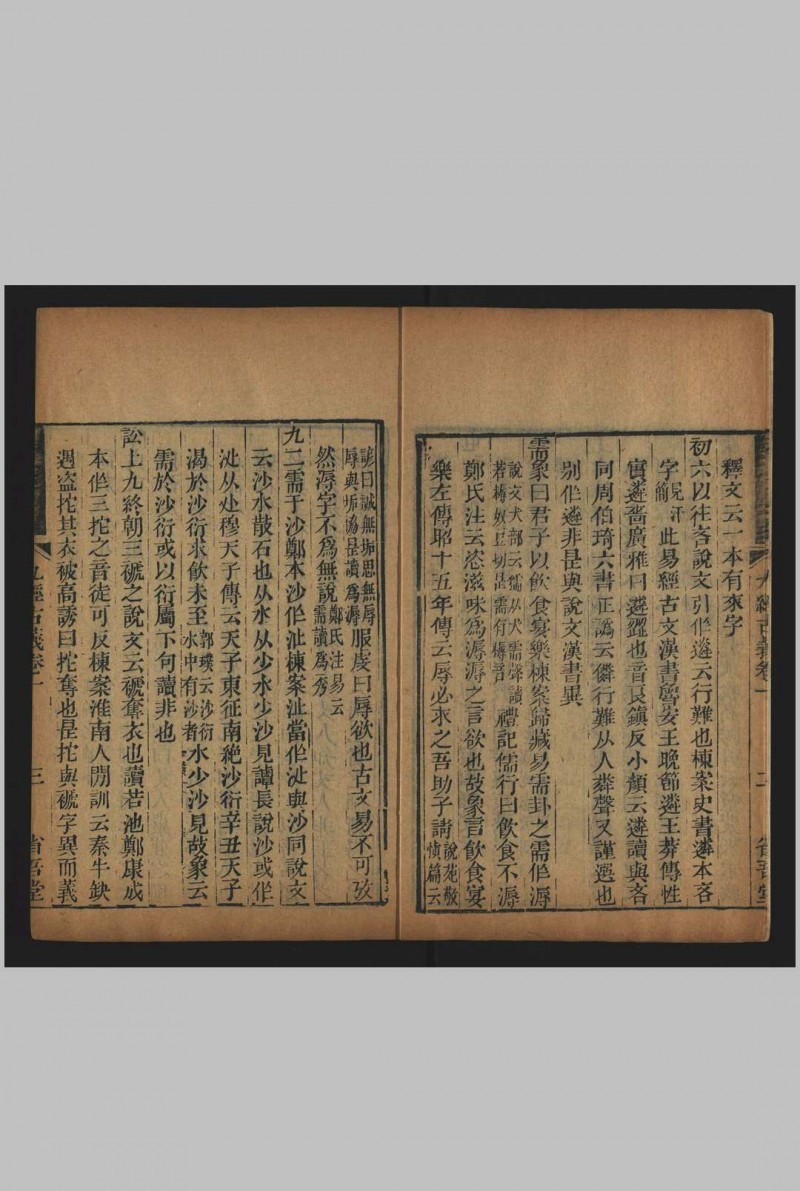 釋文云一本有家字
初六以往吝說文引作遴云行難也棟案史書遴本吝
字見汗簡此易經古文漢書魯安王晚節遴王莽傳性
實遴嗇廣雅曰遴𢥞也音艮鎮反小顏云遴讀與吝
同周伯琦六書正譌云僯行難从人粦聲又謹選也
別作遴非是與說文漢書異
需象曰君子以飲食宴樂棟案歸藏易需卦之需作溽
說文犬部云獳从犬需聲讀若槈奴豆切是需有槈音禮記儒行曰飲食不溽
鄭氏注云恣滋味為溽溽之言欲也故象言飲食宴
樂左傳昭十五年傳云辱必求之吾助子請說苑敬慎篇云
諺曰誠無垢思無辱辱與垢協是讀為溽服虔曰辱欲也古文易不可攷
然溽字不為無說鄭氏注易云需讀為秀
九二需于沙鄭本沙作沚棟案沚當作沙與沙同說文
云沙水散石也从水从少水少沙見譚長說沙或作
沙从尐穆天子傳云天子東征南絕沙衍辛丑天子
渴於沙衍求飲未至郭璞云沙衍水中有沙者水少沙見故象云
需於沙衍或以衍屬下句讀非也
訟上九終朝三褫之說文云褫奪衣也讀若池鄭康成
本作三拕之音徒可反棟案淮南人閒訓云秦牛缺
遇盜拕其衣被高誘曰拕奪也是拕與褫字異而義
九經古義卷一
三
省吾堂